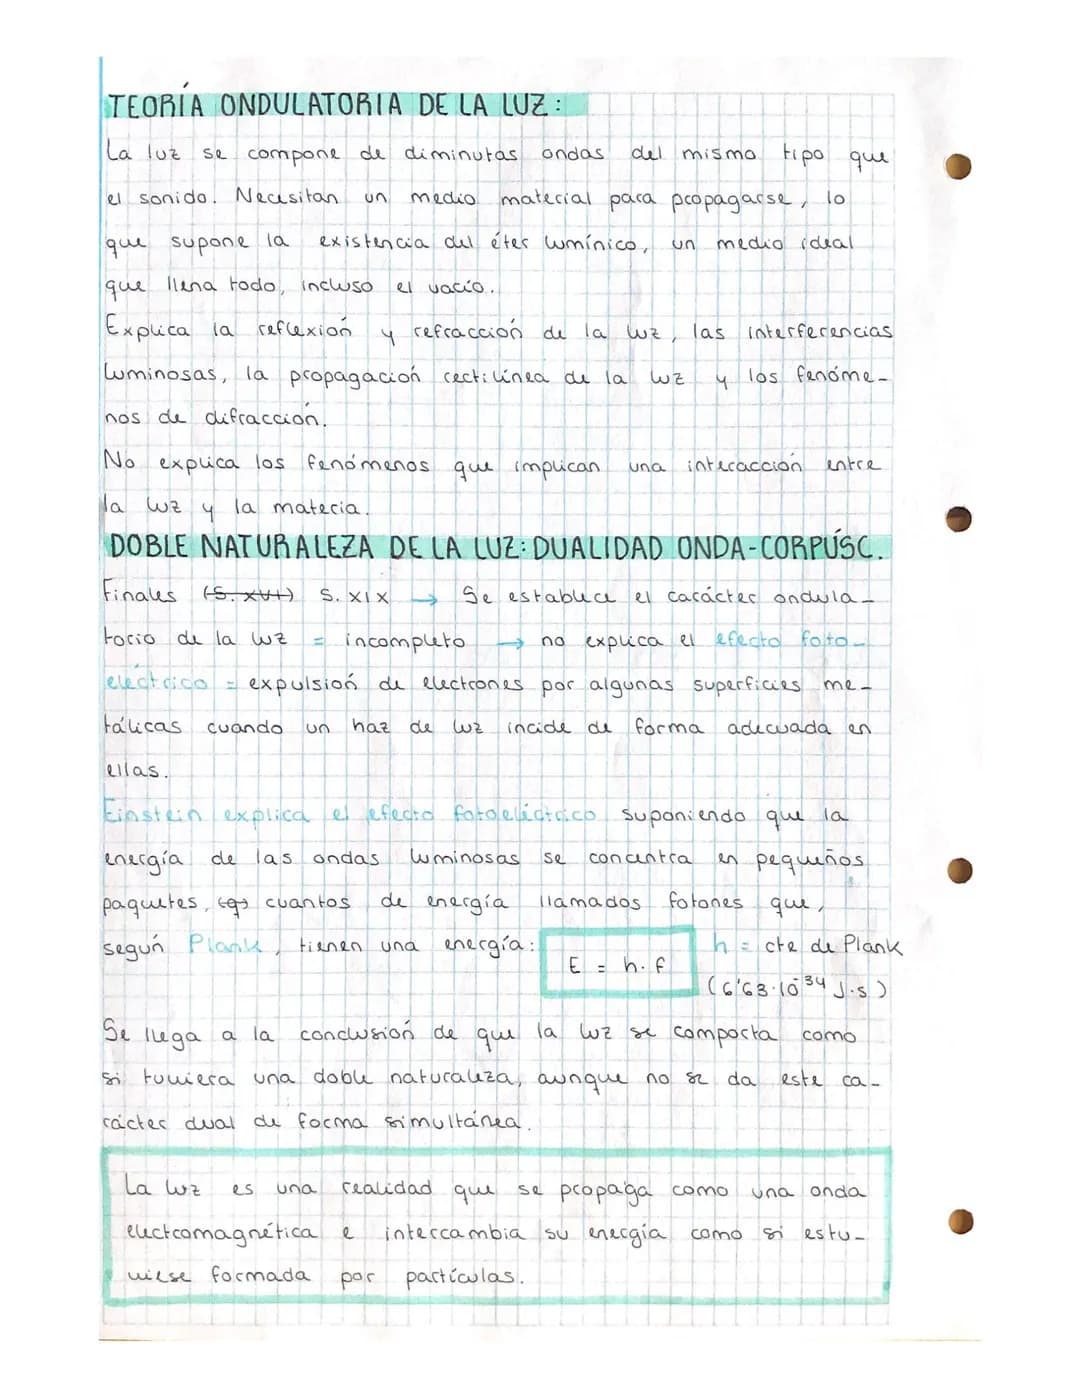 TEORÍA ONDULATORIA DE LA LUZ:
La luz se compone de diminutas ondas del mismo tipo que
el sonido. Necesitan un medio material para propagarse, lo
que supone la existencia del éter lumínico, un medio ideal
que llena todo, incluso el vacío.
Explica la reflexión y refracción de la luz, las interferencias
luminosas, la propagación rectilínea de la luz y los fenóme-
nos de difracción.
No explica los fenómenos que implican una interacción entre
la luz y la materia.
DOBLE NATURALEZA DE LA LUZ: DUALIDAD ONDA-CORPÚSC.
Finales (S. XVI) S. XIX → Se establece el carácter ondula-
torio de la luz = incompleto → no explica el efecto foto-
eléctrico = expulsión de electrones por algunas superficies me-
tálicas cuando un haz de luz incide de forma adecuada en
ellas.
Einstein explica el efecto fotoeléctrico suponiendo que la
energía de las ondas luminosas se concentra en pequeños
paquetes, cuantos de energía llamados fotones que,
según Plank, tienen una energía: E = h.f h = cte de Plank
(6'63·10⁻³⁴ J·s)
Se llega a la conclusión de que la luz se comporta como
si tuviera una doble naturaleza, aunque no se da este ca-
rácter dual de forma simultánea.
La luz es una realidad que se propaga como una onda
electromagnética e intercambia su energía como si estu-
viese formada por partículas.